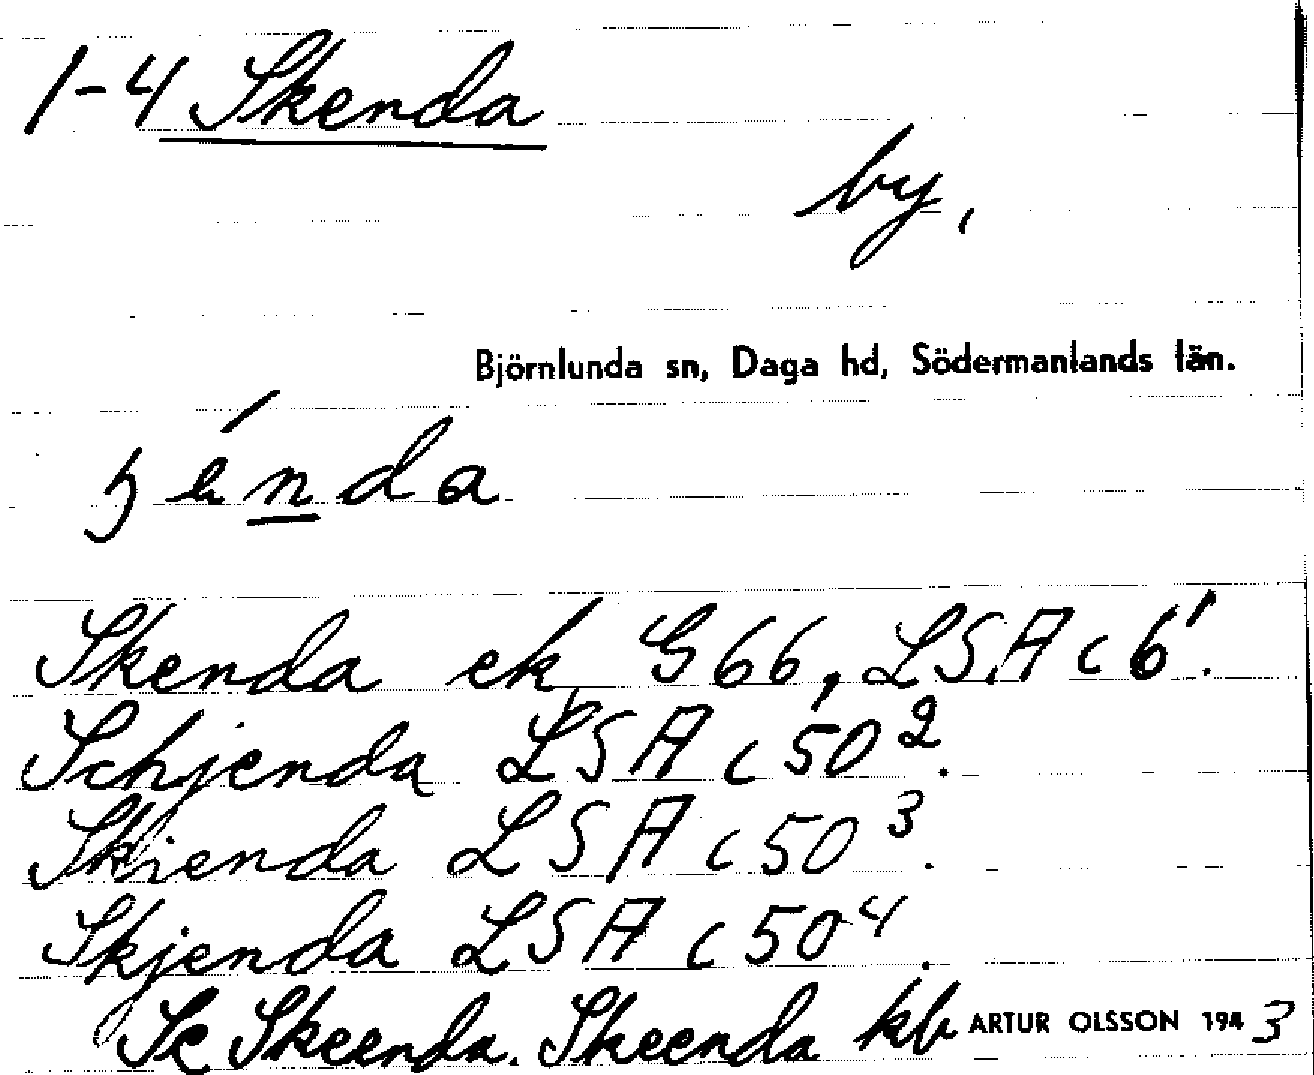 1-4 Skenda
by,
Björnlunda sn, Daga hd, Södermanlands län.
Skenda ek G66, LSA c 6¹.
Schjenda LSA c 50².
Skienda LSA c 50³.
Skjenda LSA c 50⁴.
Se Skeenda. Skeenda kb ARTUR OLSSON 1943